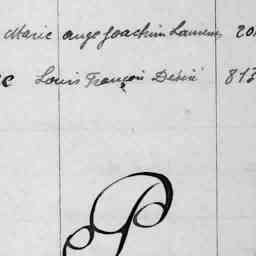 Marie ange Joachim Laurent 20
c Louis François Désiré 81
P